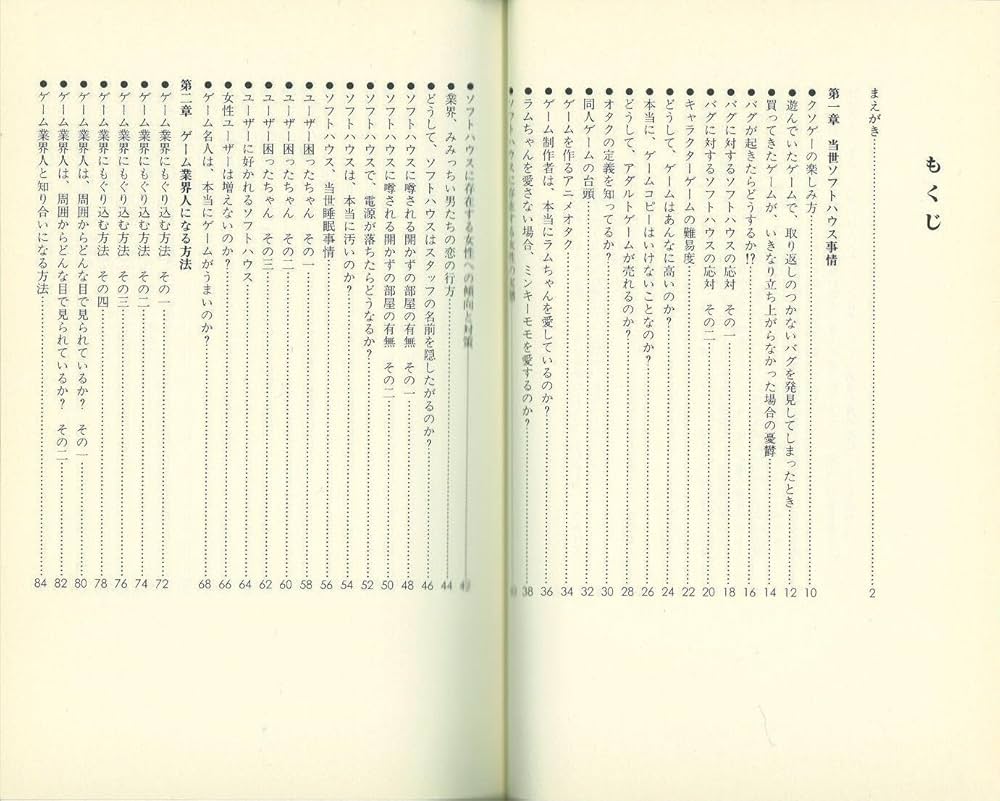 もくじ
まえがき……2
第一章　当世ソフトハウス事情
●クソゲーの楽しみ方……10
●遊んでいたゲームで、取り返しのつかないバグを発見してしまったとき……12
●買ってきたゲームが、いきなり立ち上がらなかった場合の憂鬱……14
●バグが起きたらどうするか!?……16
●バグに対するソフトハウスの応対　その一……18
●バグに対するソフトハウスの応対　その二……20
●キャラクターゲームの難易度……22
●どうして、ゲームはあんなに高いのか?……24
●本当に、ゲームコピーはいけないことなのか?……26
●どうして、アダルトゲームが売れるのか?……28
●オタクの定義を知ってるか?……30
●同人ゲームの台頭……32
●ゲームを作るアニメオタク……34
●ゲーム制作者は、本当にラムちゃんを愛しているのか?……36
●ラムちゃんを愛さない場合、ミンキーモモを愛するのか?……38
ソフトハウスに
●ソフトハウスに存在する女性への傾向と対策……42
●業界、みみっちい男たちの恋の行方……44
●どうして、ソフトハウスはスタッフの名前を隠したがるのか?……46
●ソフトハウスに噂される開かずの部屋の有無　その一……48
●ソフトハウスに噂される開かずの部屋の有無　その二……50
●ソフトハウスで、電源が落ちたらどうなるか?……52
●ソフトハウスは、本当に汚いのか?……54
●ソフトハウス、当世睡眠事情……56
●ユーザー困ったちゃん　その一……58
●ユーザー困ったちゃん　その二……60
●ユーザー困ったちゃん　その三……62
●ユーザーに好かれるソフトハウス……64
●女性ユーザーは増えないのか?……66
●ゲーム名人は、本当にゲームがうまいのか?……68
第二章　ゲーム業界人になる方法
●ゲーム業界にもぐり込む方法　その一……72
●ゲーム業界にもぐり込む方法　その二……74
●ゲーム業界にもぐり込む方法　その三……76
●ゲーム業界にもぐり込む方法　その四……78
●ゲーム業界人は、周囲からどんな目で見られているか?　その一……80
●ゲーム業界人は、周囲からどんな目で見られているか?　その二……82
●ゲーム業界人と知り合いになる方法……84